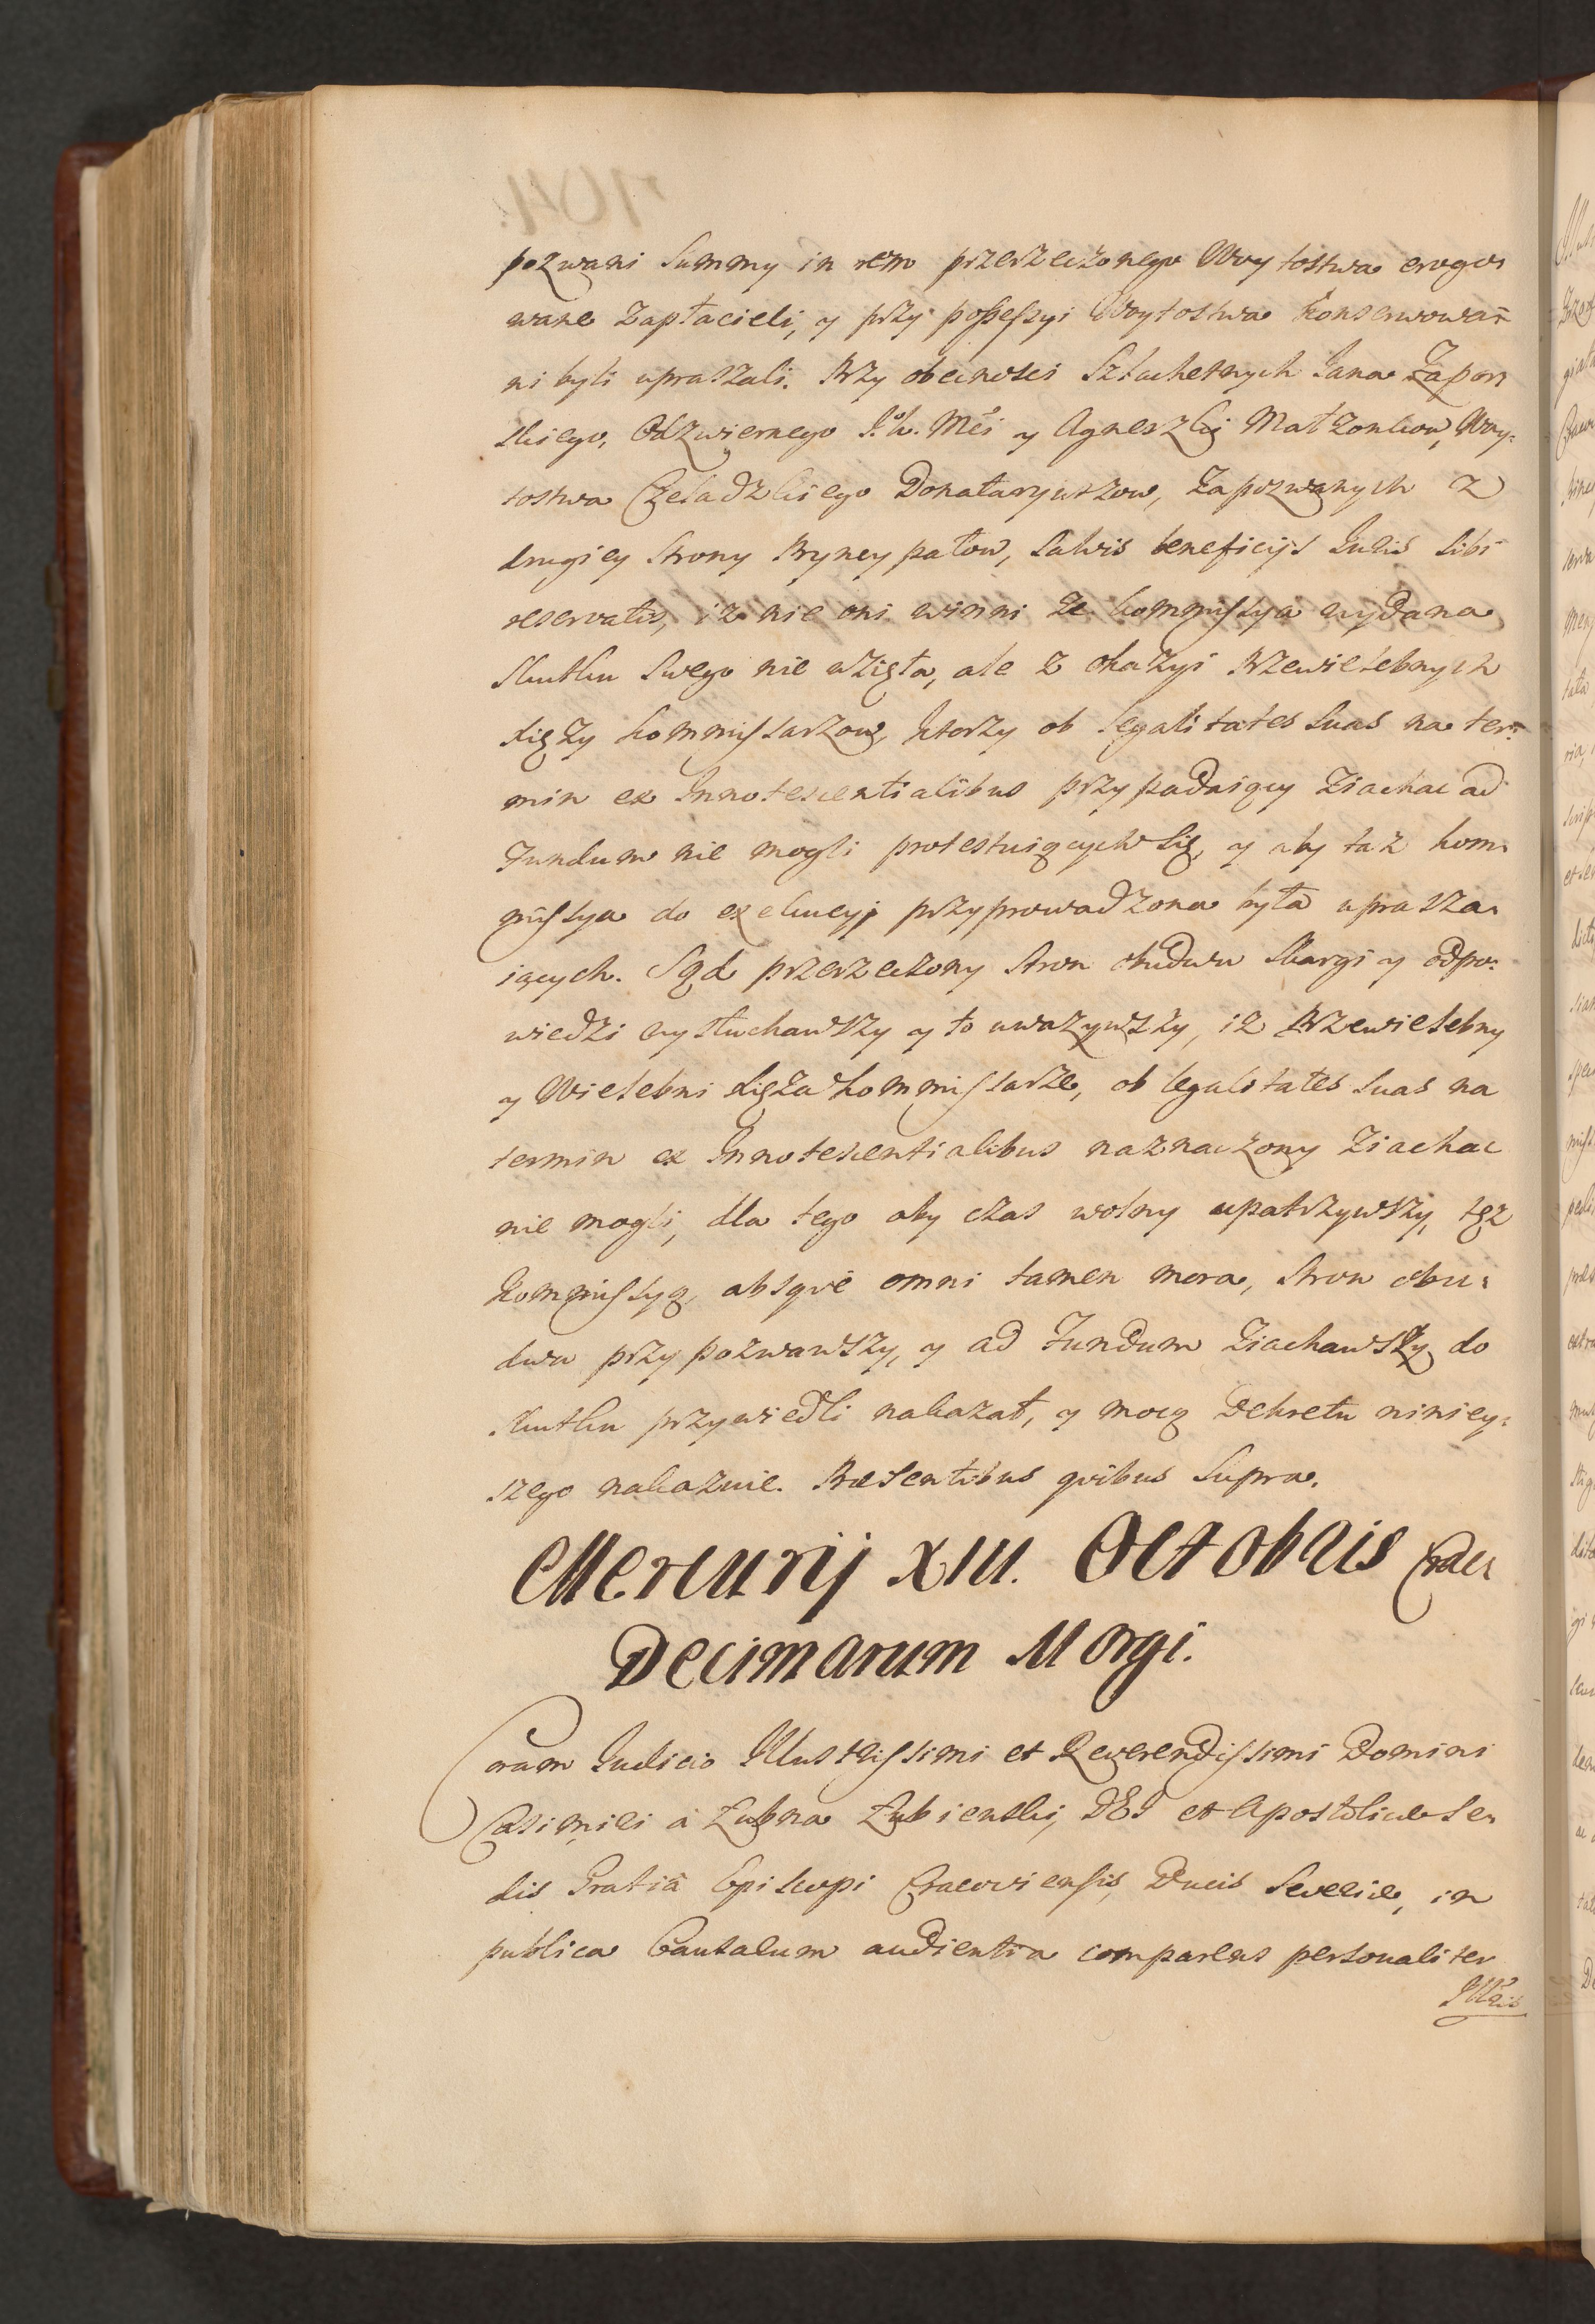 pozwani Summy in rem przerzeczonego Woytostwa erogo-
wane zapłacieli, y przy possessyi Woytostwa konserwowa-
ni byli upraszali. Przy obecnosci Szlachetnych Jana Zapor-
skiego, Odzwiernego J. K. Mci y Agneszki Małżonkow, Woy-
tostwa Czeladzkiego Donataryuszow, Zapozwanych z
drugiey strony Pryncypałow, salvis beneficijs Juris sibi
reservatis, iz nie oni winni ze kommissya wydana
skutku swego nie wzięła, ale z okazyi Przewielebnych
Xięży kommissarzow, ktorzy ob legalitates suas na ter-
min ex Innotescentialibus przypadaiący ziachac ad
Fundum nie mogli protestuiących się, y aby taz kom-
missya do exekucyi przyprowadzona była uprasza-
iących. Sąd przerzeczony stron obudwu skargi y odpo-
wiedzi wysłuchawszy y to uwazywszy, iz Przewielebny
y Wielebni Xięża kommissarze, ob legalitates suas na
termin ex Innotescentialibus naznaczony ziachac
nie mogli, dla tego aby czas wolny upatrzywszy, tęz
kommissyą, absqve omni tamen mora, stron obu-
dwu przypozwawszy, y ad Fundum ziachawszy do
skutku przywiedli nakazał, y mocą Dekretu niniey-
szego nakazuie. Præsentibus qvibus supra.
Mercurij XIII. Octobris Crac
Decimarum Morgi.
Coram Judicio Illustrissimi et Reverendissimi Domini
Casimiri à Łubna Łubienski, DEI et Apostolicæ Se-
dis Gratiâ Episcopi Cracoviensis, Ducis Severiæ, in
publica Causarum audientia comparens personaliter